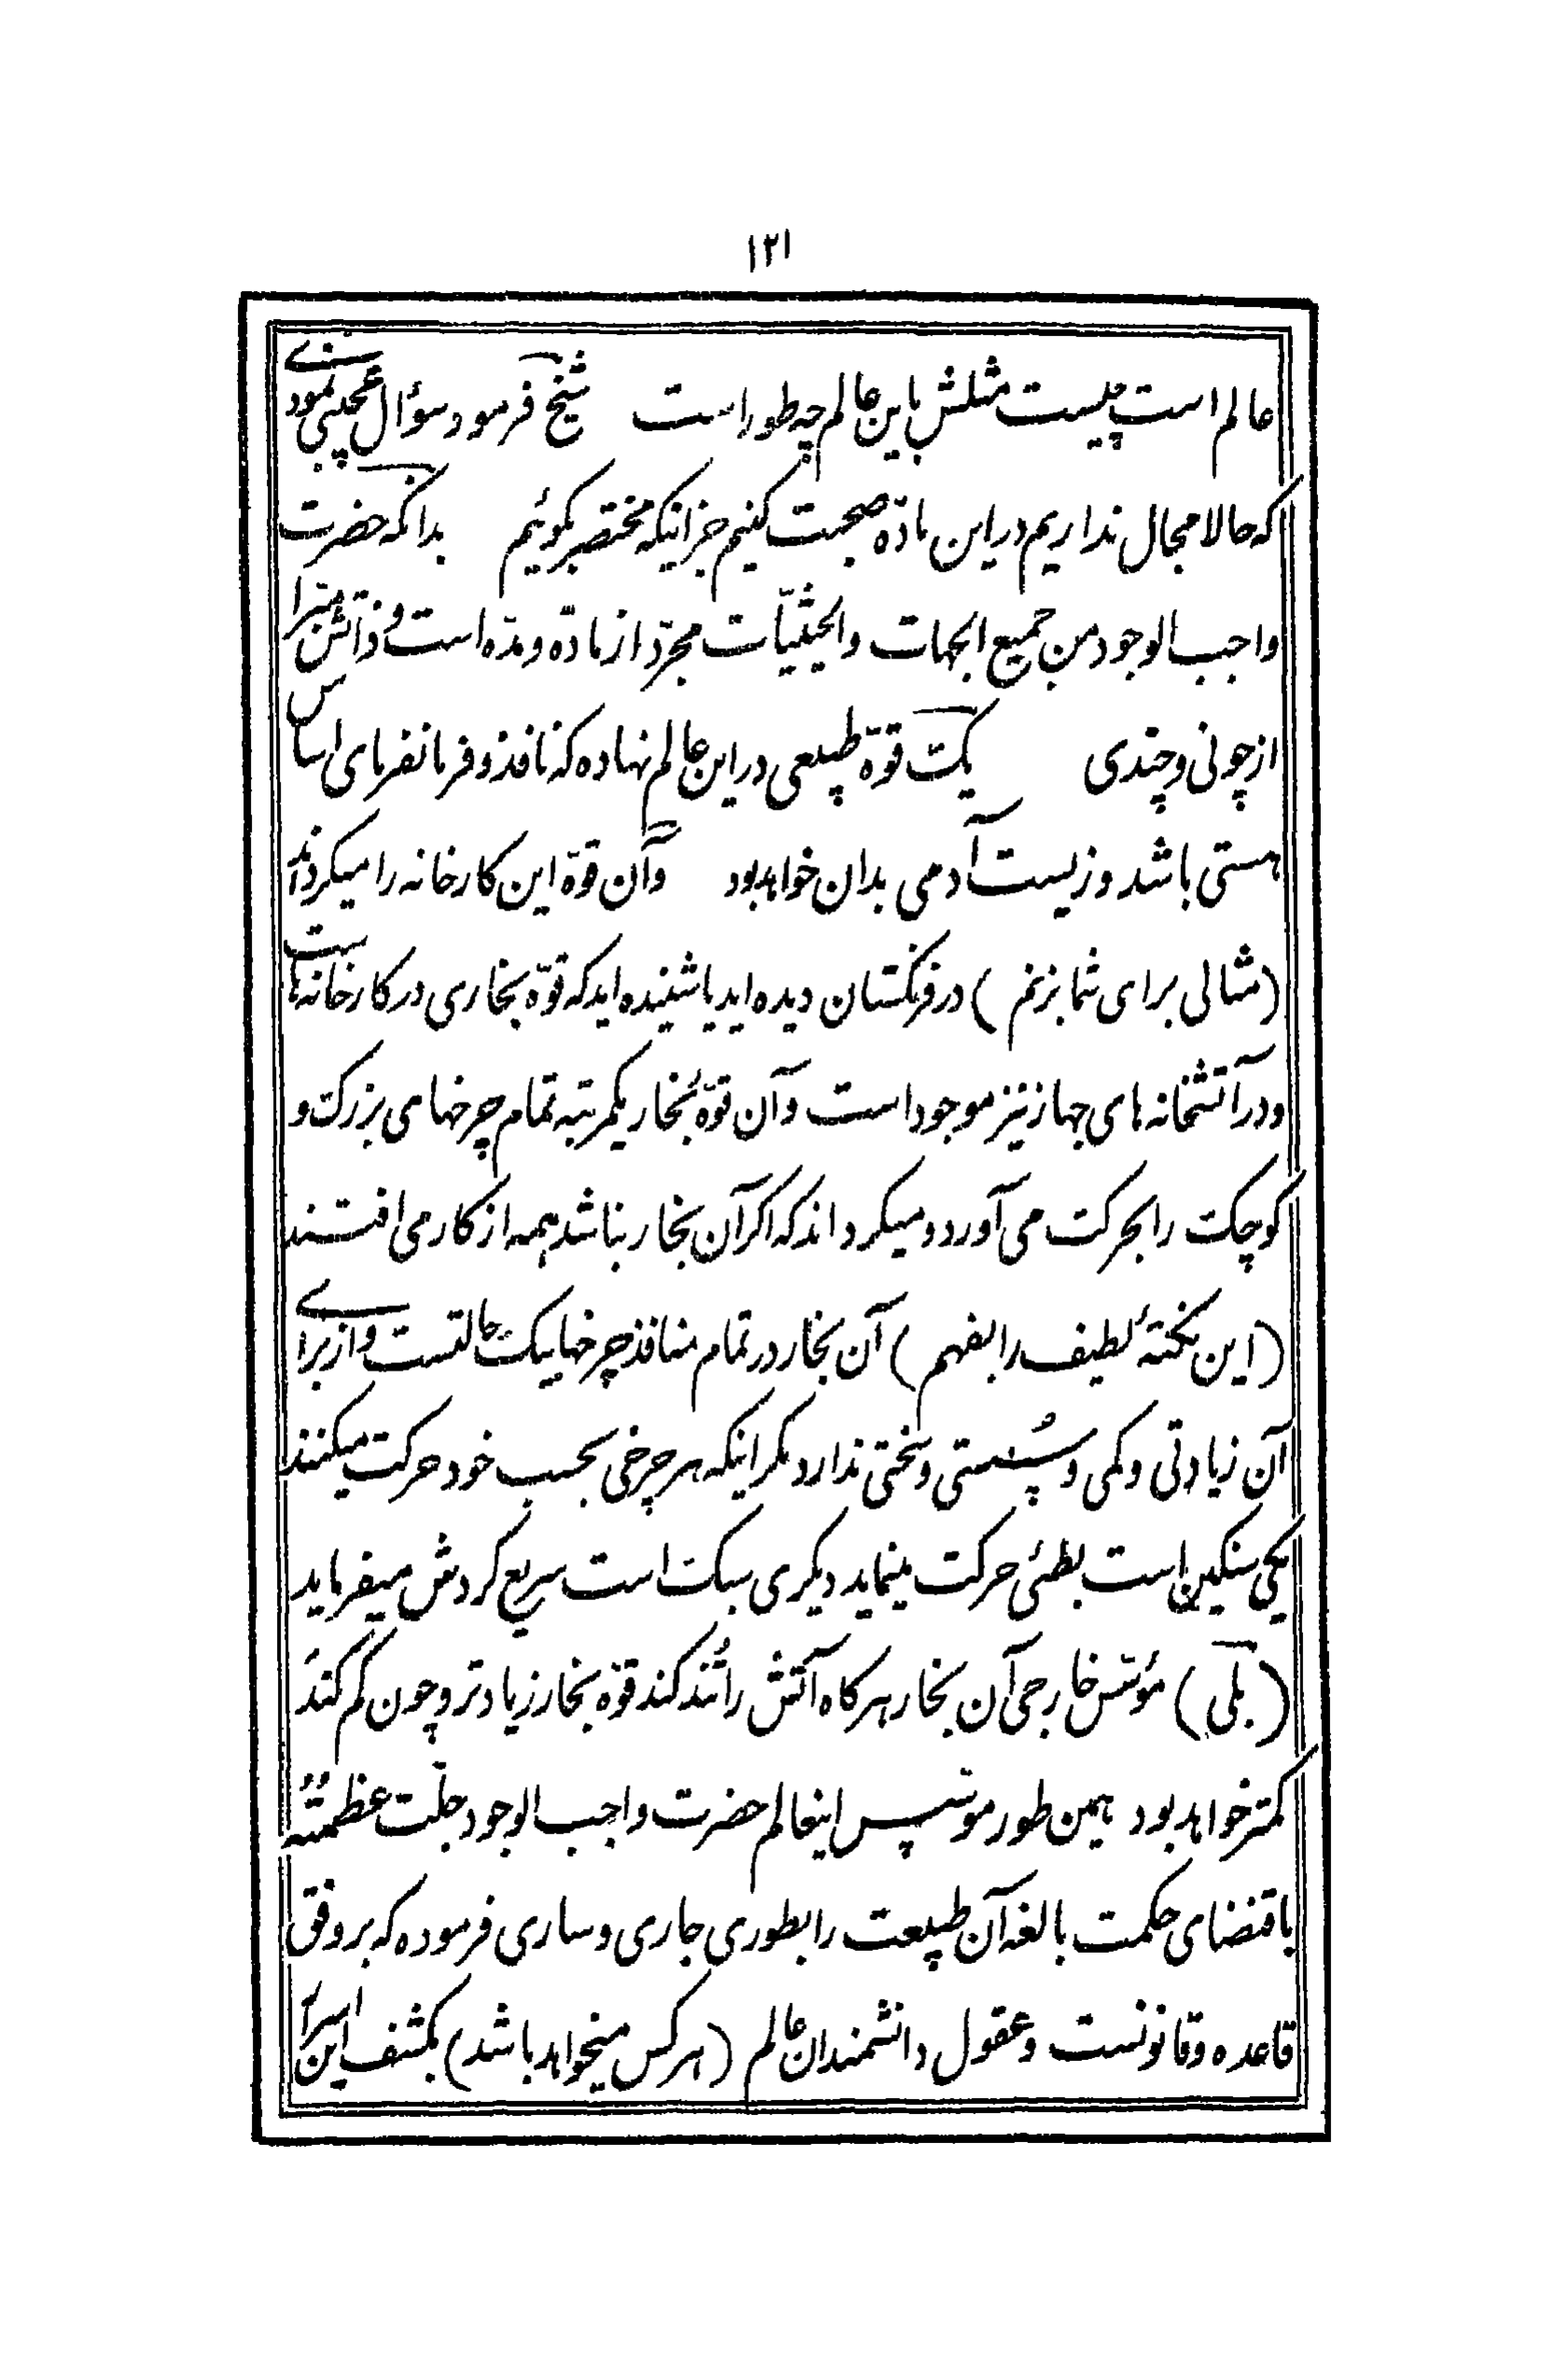 ۱۲۱
عالم است چیست مثلش باین عالم چه طور است شیخ فرمود سؤال عجیبی نمودی
که حالا مجال نداریم در این مادّه صحبت کنیم جز اینکه مختصر بکوئیم بدانکه حضرت
واجب الوجود من جمیع الجهات والحیثیّات مجرّد از مادّه و مدّه است و ذاتش مبرا
از چونی و چندی یک قوّه طبیعی در این عالم نهاده که نافذ و فرمانفرمای اساس
هستی باشد و زیست آدمی بدان خواهد بود وآن قوّه این کارخانه را میکرداند
(مثالی برای شما بزنم) در فرنکستان دیده اید یا شنیده اید که قوّه بخاری در کارخانه هاست
و در آتشخانه های جهاز نیز موجود است و آن قوّهٔ بخار یکمرتبه تمام چرخهای بزرک و
کوچک را بحرکت می آورد و میکرداند که اکر آن بخار نباشد همه از کار می افتند
(این نکتهٔ لطیف را بفهم) آن بخار در تمام منافذ چرخها بیک حالتست و از برای
آن زیادتی و کمی و سُستی و سختی ندارد مکر اینکه هر چرخی بحسب خود حرکت میکنند
یکی سنکین است بطئی حرکت مینماید دیکری سبک است سریع کردش میفرماید
(بلی) مؤسّس خارجی آن بخار هرکاه آتش را تُند کند قوّه بخار زیادتر و چون کم کند
کمتر خواهد بود همین طور مؤسّس اینعالم حضرت واجب الوجود جلّت عظمتُهُ
باقتضای حکمت بالغه آن طبیعت را بطوری جاری و ساری فرموده که بر وفق
قاعده و قانونست و عقول دانشمندان عالم (هرکس میخواهد باشد) بکشف این اسرار